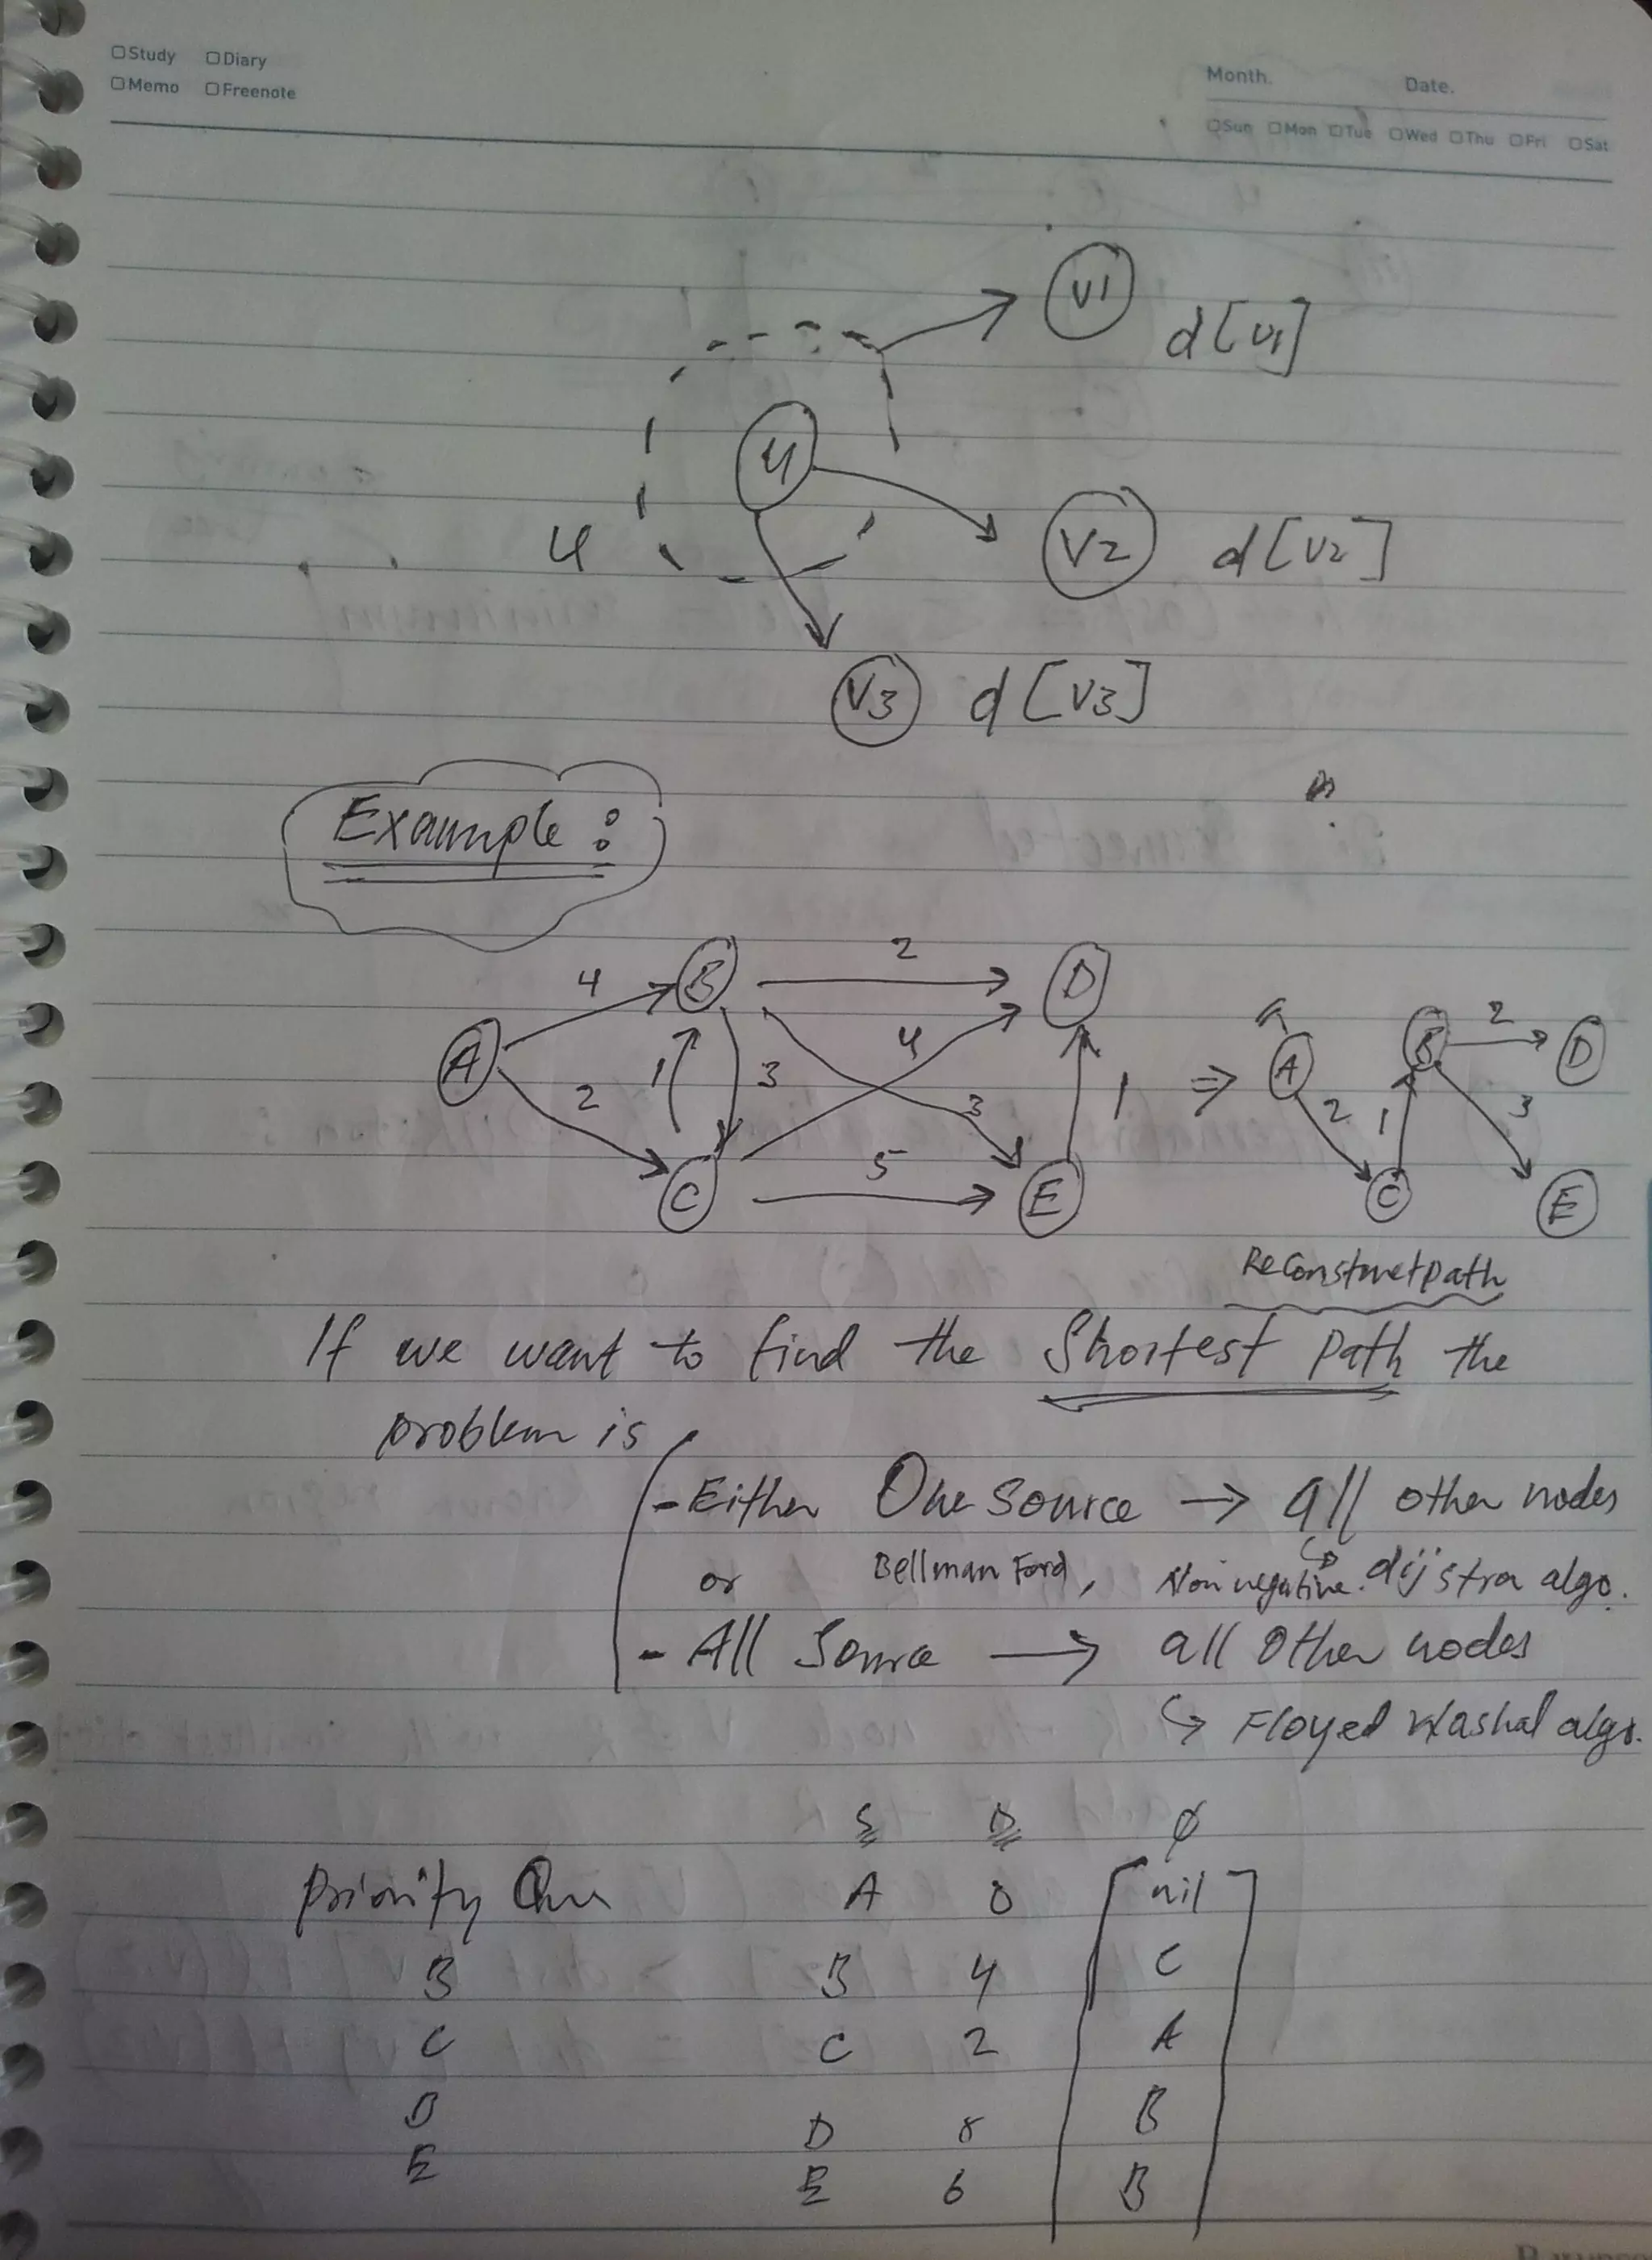 Study Diary
Memo Freenote
Month. Date.
Sun Mon Tue Wed Thu Fri Sat
V1 d[v1]
u
u V2 d[V2]
V3 d[V3]
Example:
4 B 2 D
A 1 3 4 3 1 ⇒ A B 2 D
2 C 5 E 2 1 C 3 E
Reconstruct path
If we want to find the Shortest path the
problem is
- Either One Source → all other nodes
or Bellman Ford, Non negative. dijstra algo.
- All Source → all Other nodes
↳ Floyed Washal algo.
S D ϕ
Priority A 0 nil
B B 4 C
C C 2 A
D D 8 B
E E 6 B